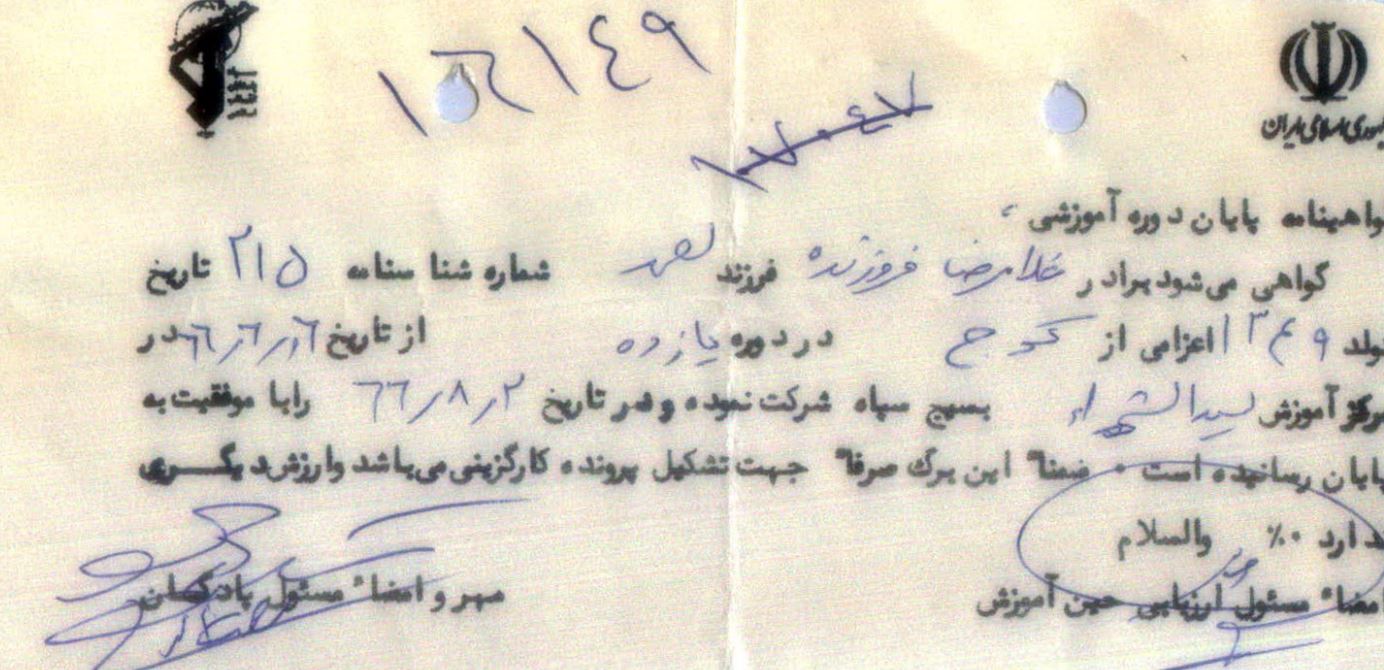 ۱۶۱۴۹
۱۷۰۴۷
جمهوری اسلامی ایران
واهینامه پایان دوره آموزشی
گواهی می‌شود برادر غلامرضا فروزنده فرزند شماره شناسنامه ۲۱۵ تاریخ
تولد ۱۳۴۹ اعزامی از در دوره یازده از تاریخ ۶۶٫۶٫۱۶ در
مرکز آموزش سیدالشهداء بسیج سپاه شرکت نموده و در تاریخ ۶۶٫۸٫۲ رابا موفقیت به
پایان رسانیده است ۰ ضمنا" این برگ صرفا" جهت تشکیل پرونده کارگزینی می‌باشد وارزش دیگـــری
ندارد ۰٪ والسلام
امضاء مسئول ارزیابی حین آموزش مهر و امضاء مسئول پادگان